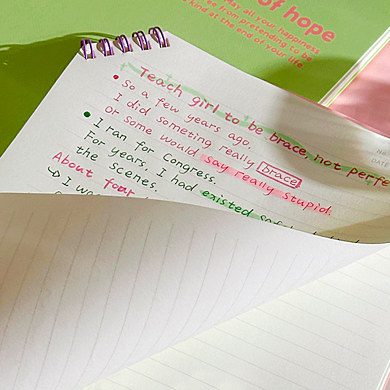 of hope
May all your happiness
be from pretending to
kind as the end of your life
Teach girl to be brace, not perfe
So a few years ago,
I did someting really brace
Or some would say really stupid.
I ran for Congress.
For years, I had existed
the scenes.
About four
I wo